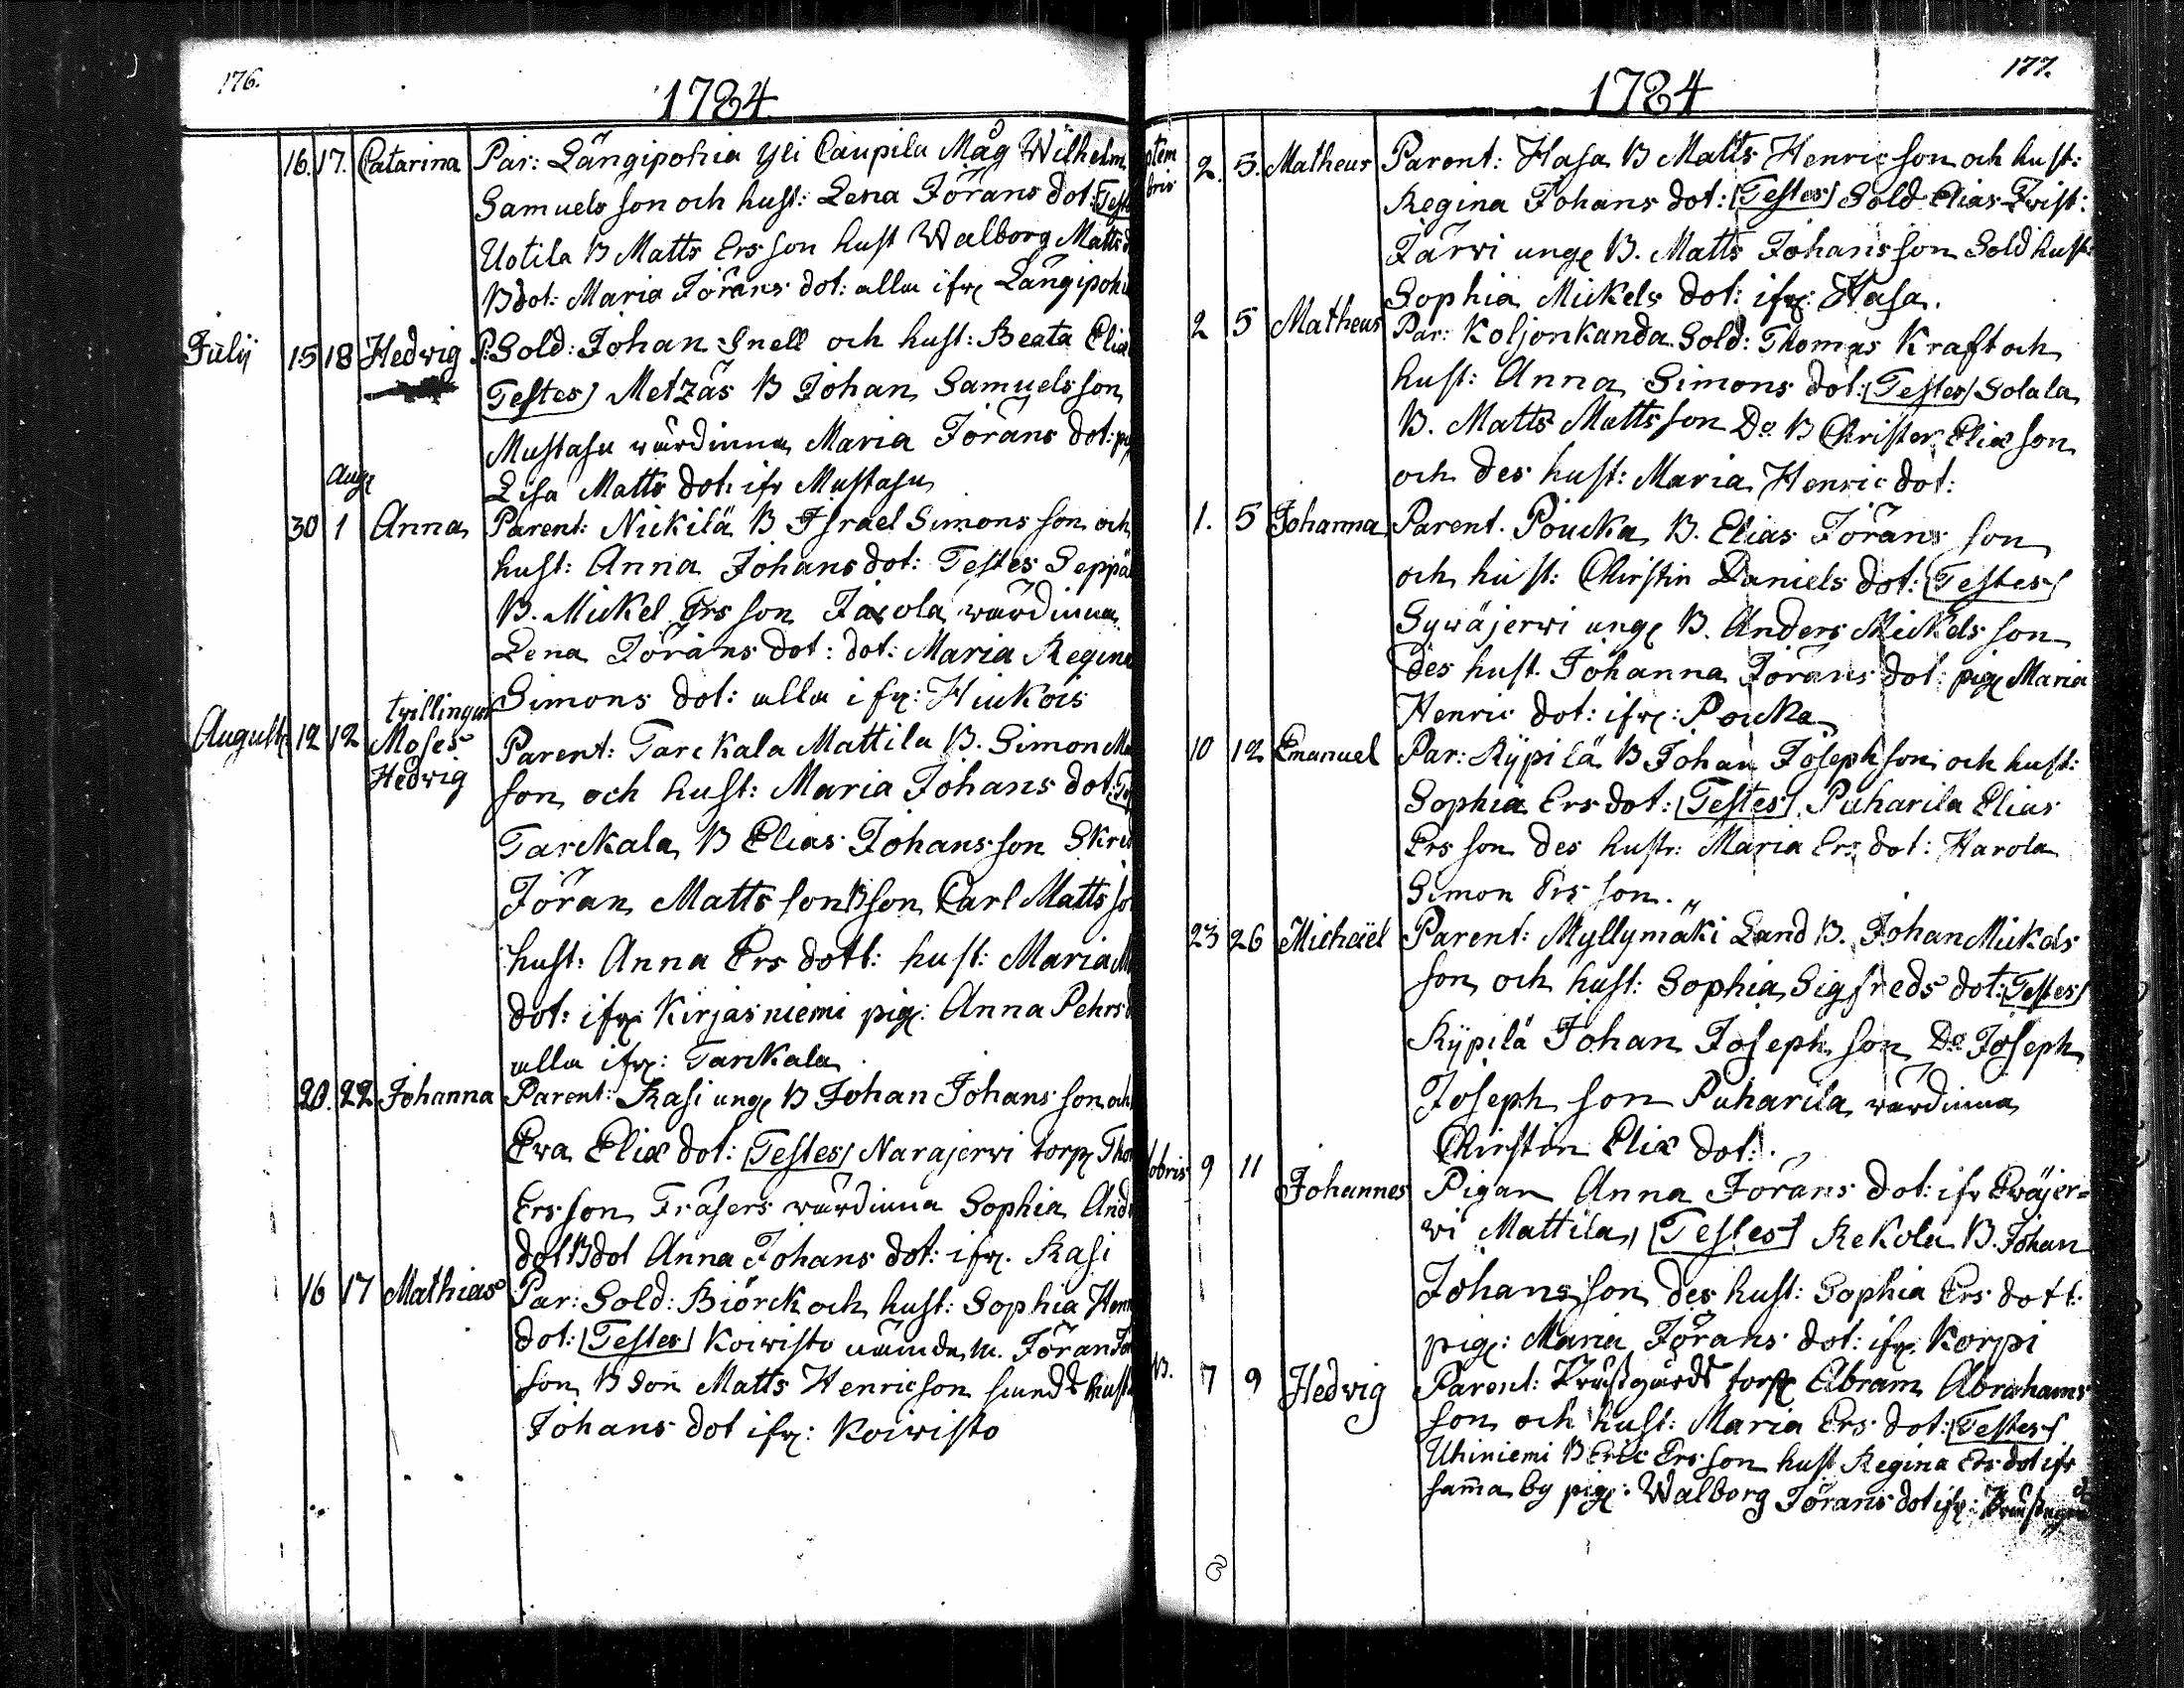 176.
1784.
16. 17. Catarina Par: Längipohia Yli Caupila Måg Wilhelm
Samuels son och hust: Lena Jörans dot: Testes
Uotila B Matts Ers son hust Walborg Matts
B dot: Maria Jörans dot: alla ifr: Längipohia
Julij 15 18 Hedwig P: Sold: Johan Snell och hust: Beata Eliæ
Testes Metzäs B Johan Samuels son
Mustasa wärdinna Maria Jörans dot: pig
Lisa Matts dot: ifr Mustasa
Aug:
30 1 Anna Parent: Nickilä B Israel Simons son och
hust: Anna Johans dot: Testes Seppä
B. Mickel Ers son Jaxola wärdinna
Lena Jörans dot: dot: Maria Regina
Simons dot: alla ifr: Hiukois
twillingar
August: 12 12 Moses Parent: Tarckala Mattila B. Simon
Hedwig son och hust: Maria Johans dot:
Tarckala B Elias Johans son
Jöran Matts son B son Carl Matts so
hust: Anna Ers dott: hust: Maria
dot: ifr: Kirjasniemi pig: Anna Pehrs
alla ifr: Tarckala
20. 22 Johanna Parent: Kasi ung: B Johan Johans son och
Ewa Eliæ dot: Testes Narajerwi torp:
Ers son Fräsers wärdinna Sophia And
dot B dot Anna Johans dot: ifr. Kasi
16 17 Mathias Par: Sold: Biörck och hust: Sophia Hen
dot: Testes Koiwisto nämdem. Jöran
son B son Matts Henric son hust
Johans dot ifr: Koiwisto
177.
1784
ptem
bris
2. 5. Matheus Parent: Hasa B Matts Henric son och hust:
Regina Johans dot: Testes Sold Elias Frist:
Järwi ung: B. Matts Johans son Sold hust:
Sophia Mickels dot: ifr: Hasa.
2 5 Matheus Par: Koljonkanda Sold: Thomas Kraft och
hust: Anna Simons dot: Testes Solala
B. Matts Matts son Do B Christer Eliæ son
och des hust: Maria Henric dot:
1. 5 Johanna Parent. Poucka B. Elias Jörans son
och hust: Christin Daniels dot: Testes
Sywäjerwi ung: B. Anders Mickels son
des hust. Johanna Jörans dot: pig: Maria
Henric dot: ifr: Poucka
10 12 Emanuel Par: Kÿpilä B Johan Joseph son och hust:
Sophia Ers dot: Testes Puharila Elias
Ers son des hustr: Maria Ers dot: Harola
Simon Ers son. „
23 26 Michaël Parent: Myllymäki Land B. Johan Mickels
son och hust: Sophia Sigfreds dot: Testes
Kÿpilä Johan Joseph son Do Joseph
Joseph son Puharila wärdinna
Christin Eliæ dot:
tobris 9 11 Johannes Pigan Anna Jörans dot: ifr Ewäjer=
wi Mattila Testes Kekola B. Johan
Johans son des hust: Sophia Ers dott:
pig: Maria Jörans dot: ifr: Korpi
B. 7 9 Hedwig Parent: torp: Abram Abrahams
son och hust: Maria Ers dot: Testes
Uhiniemi B Eric Ers son hust Regina Ers dot ifr
sam̄a by pig: Walborg Jörans dot ifr: